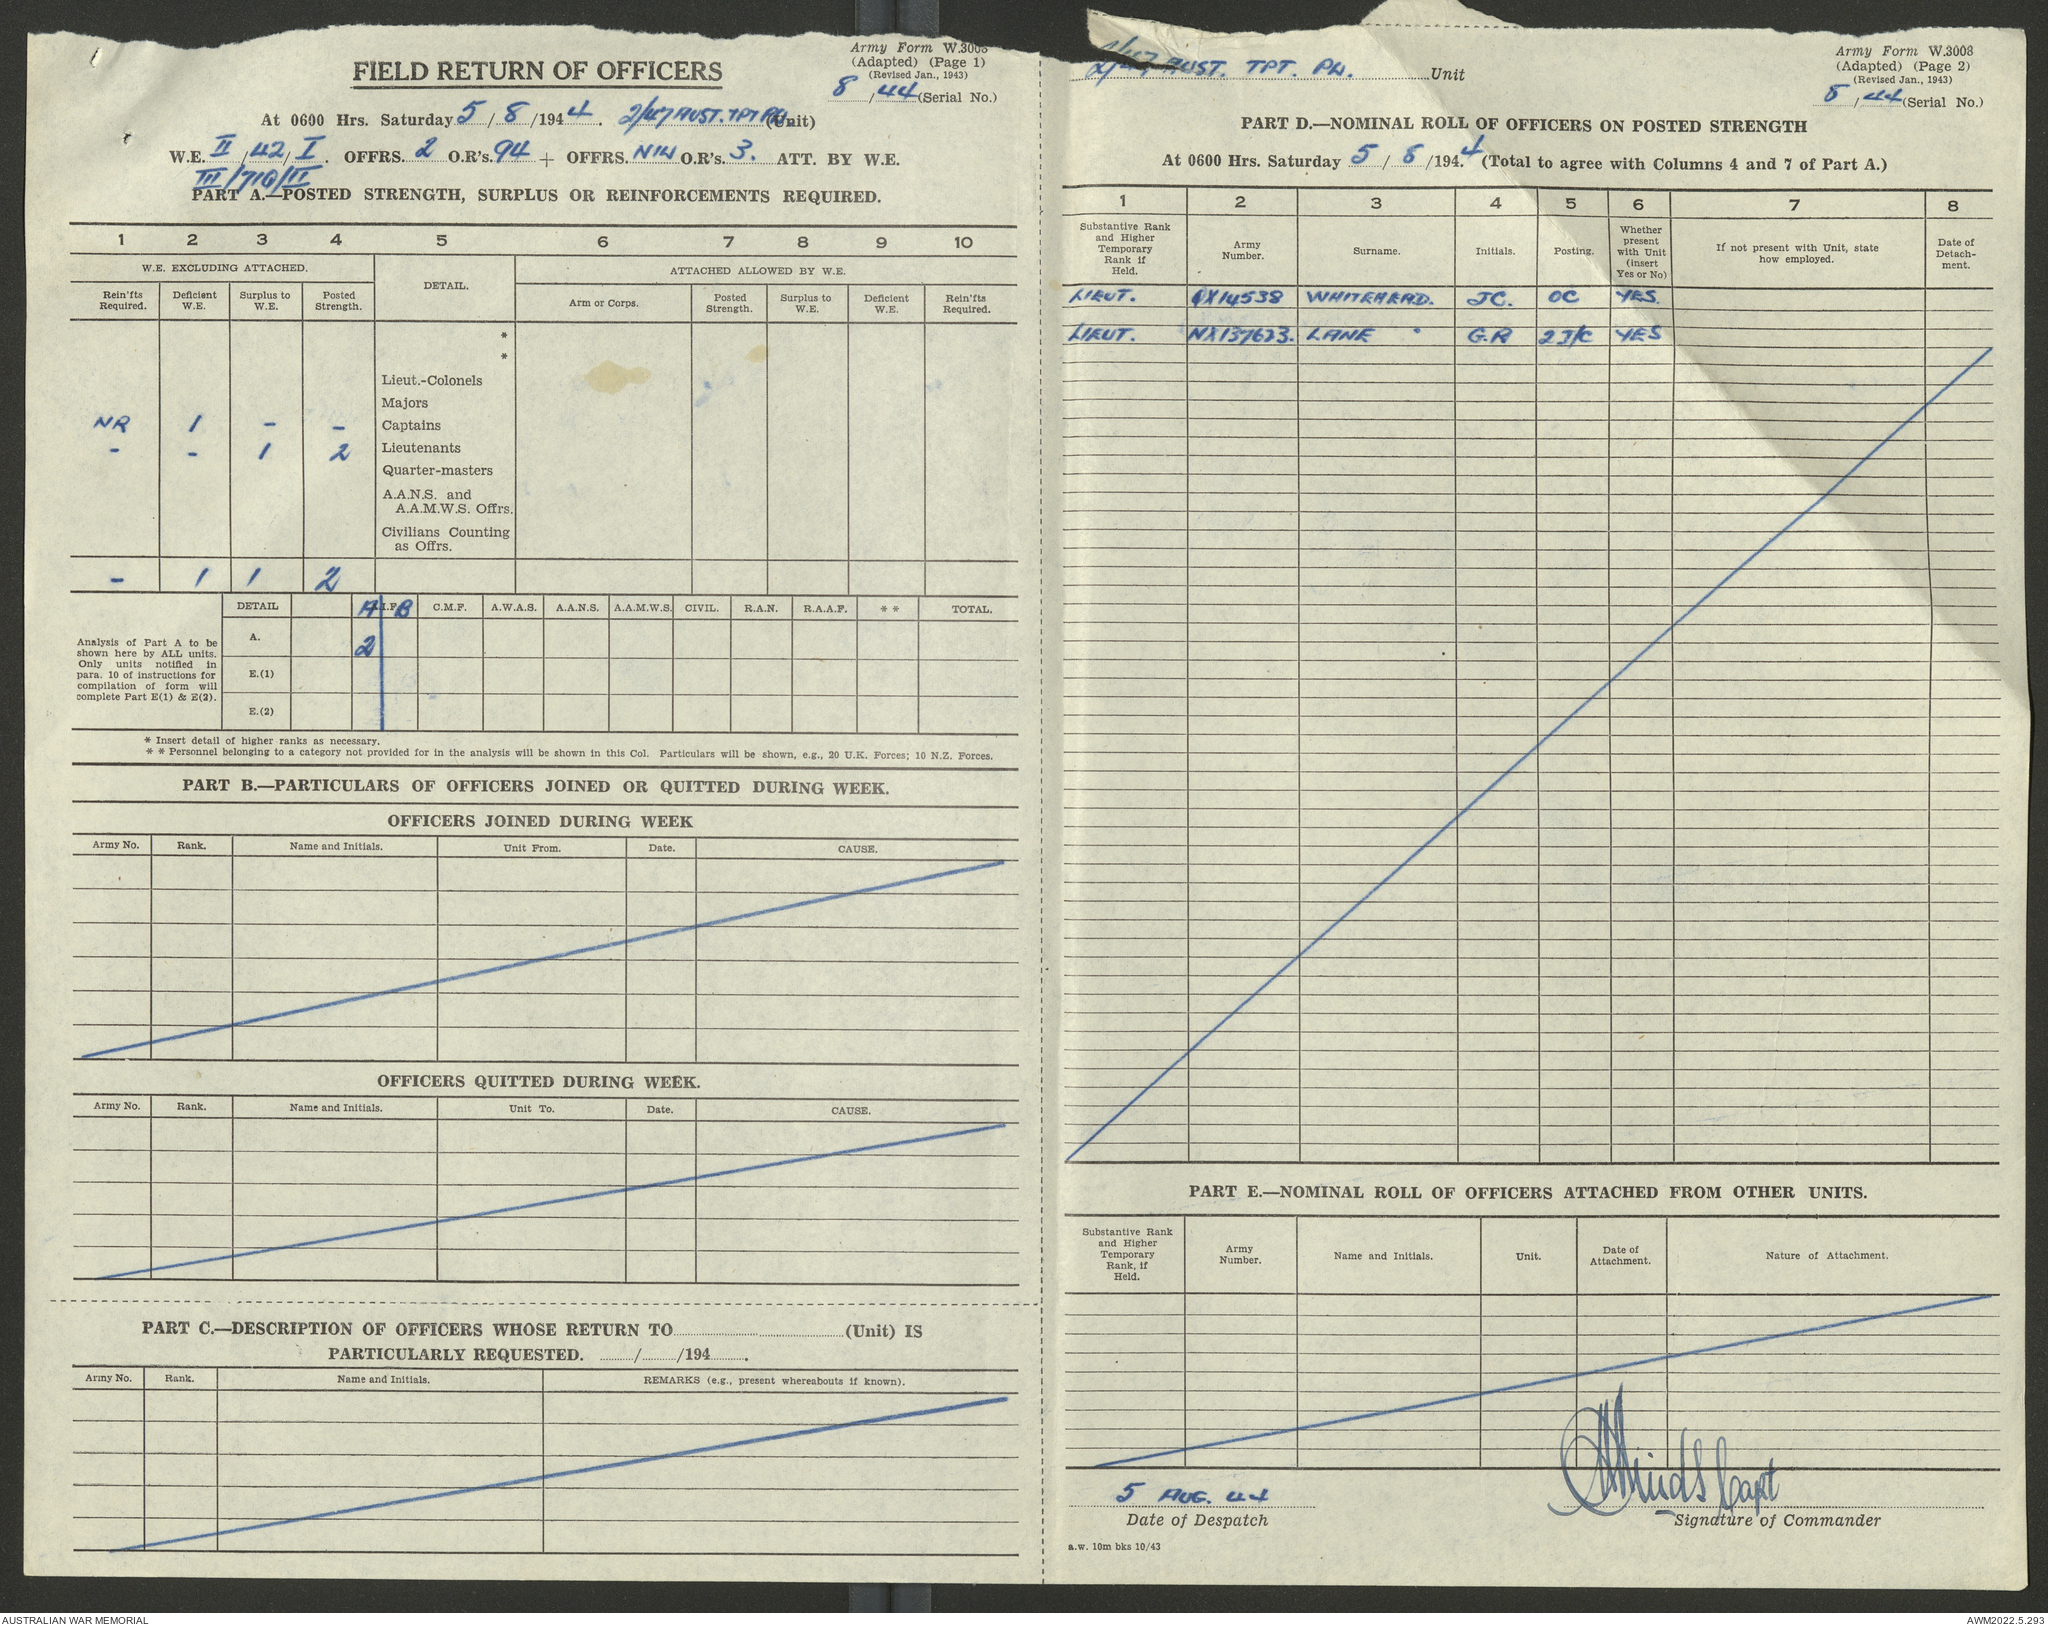 Army Form W.3008
(Adapted) (Page 1)
(Revised Jan., 1943)
8/44 (Serial No.)
FIELD RETURN OF OFFICERS
At 0600 Hrs. Saturday 5/8/1944. 2/47 AUST. TPT PN. (Unit)
W.E. II/42/I. OFFRS. 2 O.R's. 94 + OFFRS. NIL O.R's. 3. ATT. BY W.E.
III/710/II
PART A.—POSTED STRENGTH, SURPLUS OR REINFORCEMENTS REQUIRED.
1 2 3 4 5 6 7 8 9 10
W.E. EXCLUDING ATTACHED. DETAIL. ATTACHED ALLOWED BY W.E.
Rein'fts Required. Deficient W.E. Surplus to W.E. Posted Strength. Arm or Corps. Posted Strength. Surplus to W.E. Deficient W.E. Rein'fts Required.
*
*
Lieut.-Colonels
Majors
NR 1 - - Captains
- - 1 2 Lieutenants
Quarter-masters
A.A.N.S. and
A.A.M.W.S. Offrs.
Civilians Counting
as Offrs.
- 1 1 2
DETAIL A A.I.F. B C.M.F. A.W.A.S. A.A.N.S. A.A.M.W.S. CIVIL. R.A.N. R.A.A.F. * * TOTAL.
Analysis of Part A to be
shown here by ALL units.
Only units notified in
para. 10 of instructions for
compilation of form will
complete Part E(1) & E(2).
A. 2
E.(1)
E.(2)
* Insert detail of higher ranks as necessary.
* * Personnel belonging to a category not provided for in the analysis will be shown in this Col. Particulars will be shown, e.g., 20 U.K. Forces; 10 N.Z. Forces.
PART B.—PARTICULARS OF OFFICERS JOINED OR QUITTED DURING WEEK.
OFFICERS JOINED DURING WEEK
Army No. Rank. Name and Initials. Unit From. Date. CAUSE.
OFFICERS QUITTED DURING WEEK.
Army No. Rank. Name and Initials. Unit To. Date. CAUSE.
PART C.—DESCRIPTION OF OFFICERS WHOSE RETURN TO (Unit) IS
PARTICULARLY REQUESTED. / /194 .
Army No. Rank. Name and Initials. REMARKS (e.g., present whereabouts if known).
2/47 AUST. TPT. PN. Unit
Army Form W.3008
(Adapted) (Page 2)
(Revised Jan., 1943)
8/44 (Serial No.)
PART D.—NOMINAL ROLL OF OFFICERS ON POSTED STRENGTH
At 0600 Hrs. Saturday 5/8/1944 (Total to agree with Columns 4 and 7 of Part A.)
1 2 3 4 5 6 7 8
Substantive Rank and Higher Temporary Rank if Held. Army Number. Surname. Initials. Posting. Whether present with Unit (insert Yes or No) If not present with Unit, state how employed. Date of Detach-ment.
LIEUT. QX14538 WHITEHEAD. J.C. OC YES.
LIEUT. NX137623. LANE G.R 2I/C YES
PART E.—NOMINAL ROLL OF OFFICERS ATTACHED FROM OTHER UNITS.
Substantive Rank and Higher Temporary Rank, if Held. Army Number. Name and Initials. Unit. Date of Attachment. Nature of Attachment.
5 AUG. 44
Date of Despatch
Capt
Signature of Commander
a.w. 10m bks 10/43
AUSTRALIAN WAR MEMORIAL
AWM2022.5.293